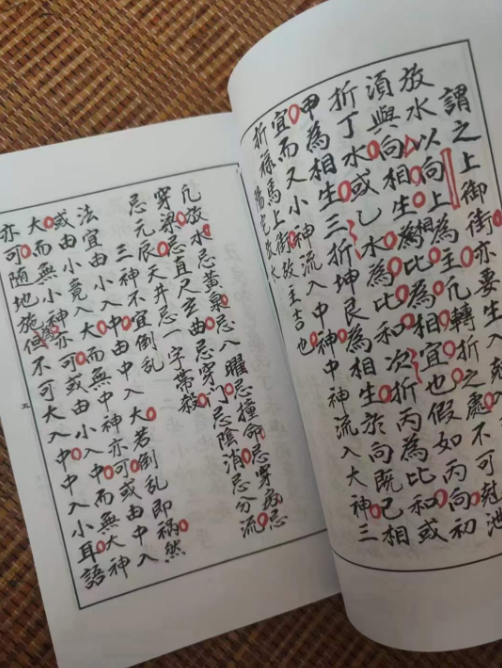 謂之上御街亦要生入
放水以向上為主凡轉折之處不可剋洩
須與向相生為相比為相宜也假如丙向初
折丁水或乙水為比和次折丙為比和或
甲為相生三折坤艮為相生於向既已相
宜而又小神流入中神中神流入大神三
折祿馬上御街故主吉也
陽宅放水
凡放水忌黃泉忌八曜忌撞命忌穿風忌
穿梁忌直尺玄曲忌穿心忌陰消忌分流
忌元辰天井忌一字帶殺
三神不宜倒亂
法宜由小入中由中入大若倒亂即禍然
或由小竟入大而無中神亦可或由中入
大而無小神亦可或由小入中而無大神
亦可隨地施但不可大入中中入小耳語